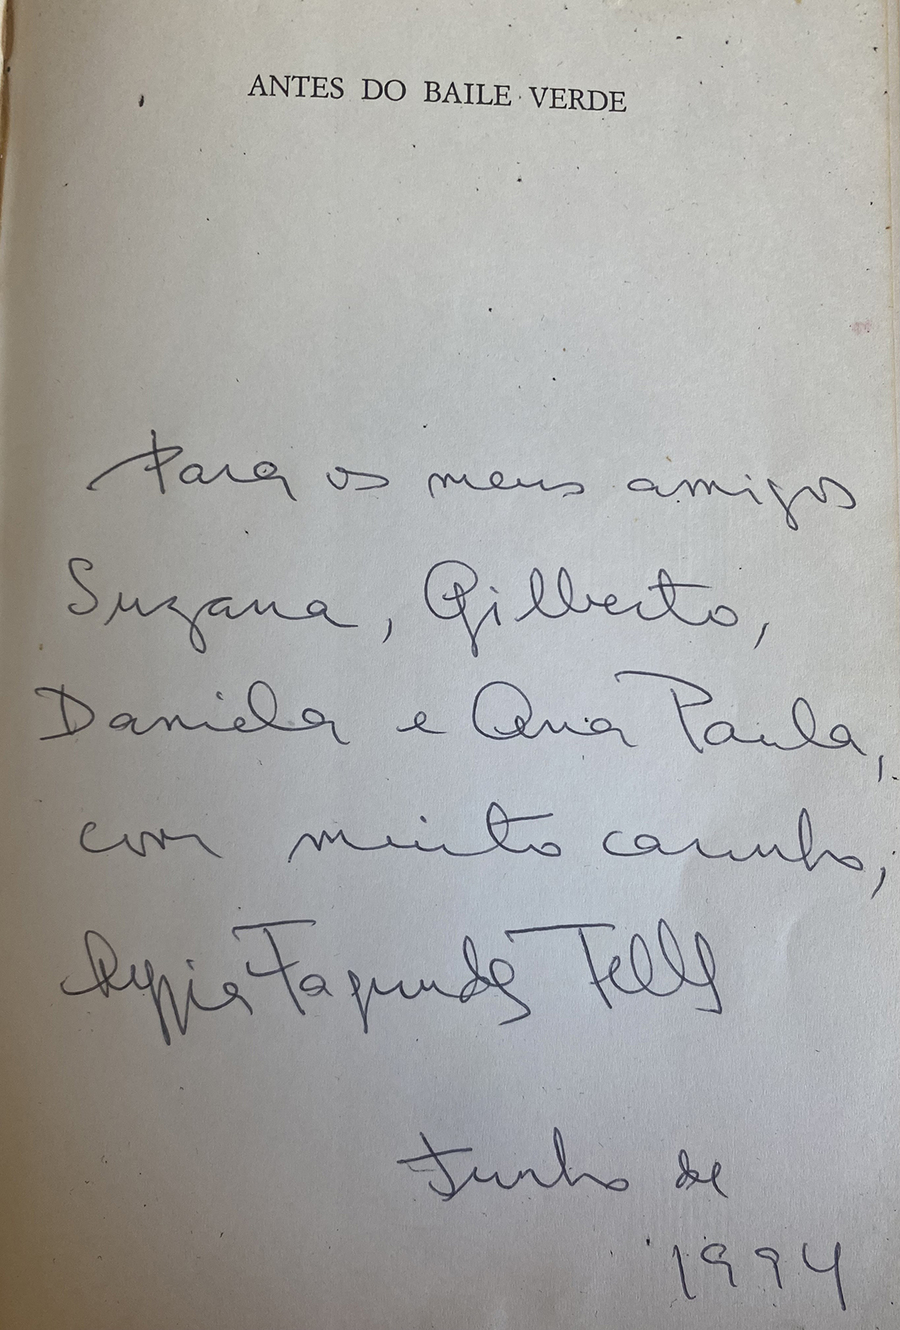 ANTES DO BAILE VERDE
Para os meus amigos
Suzana, Gilberto,
Daniela e Ana Paula,
com muito carinho,
Lygia Fagundes Telles
Junho de
1994